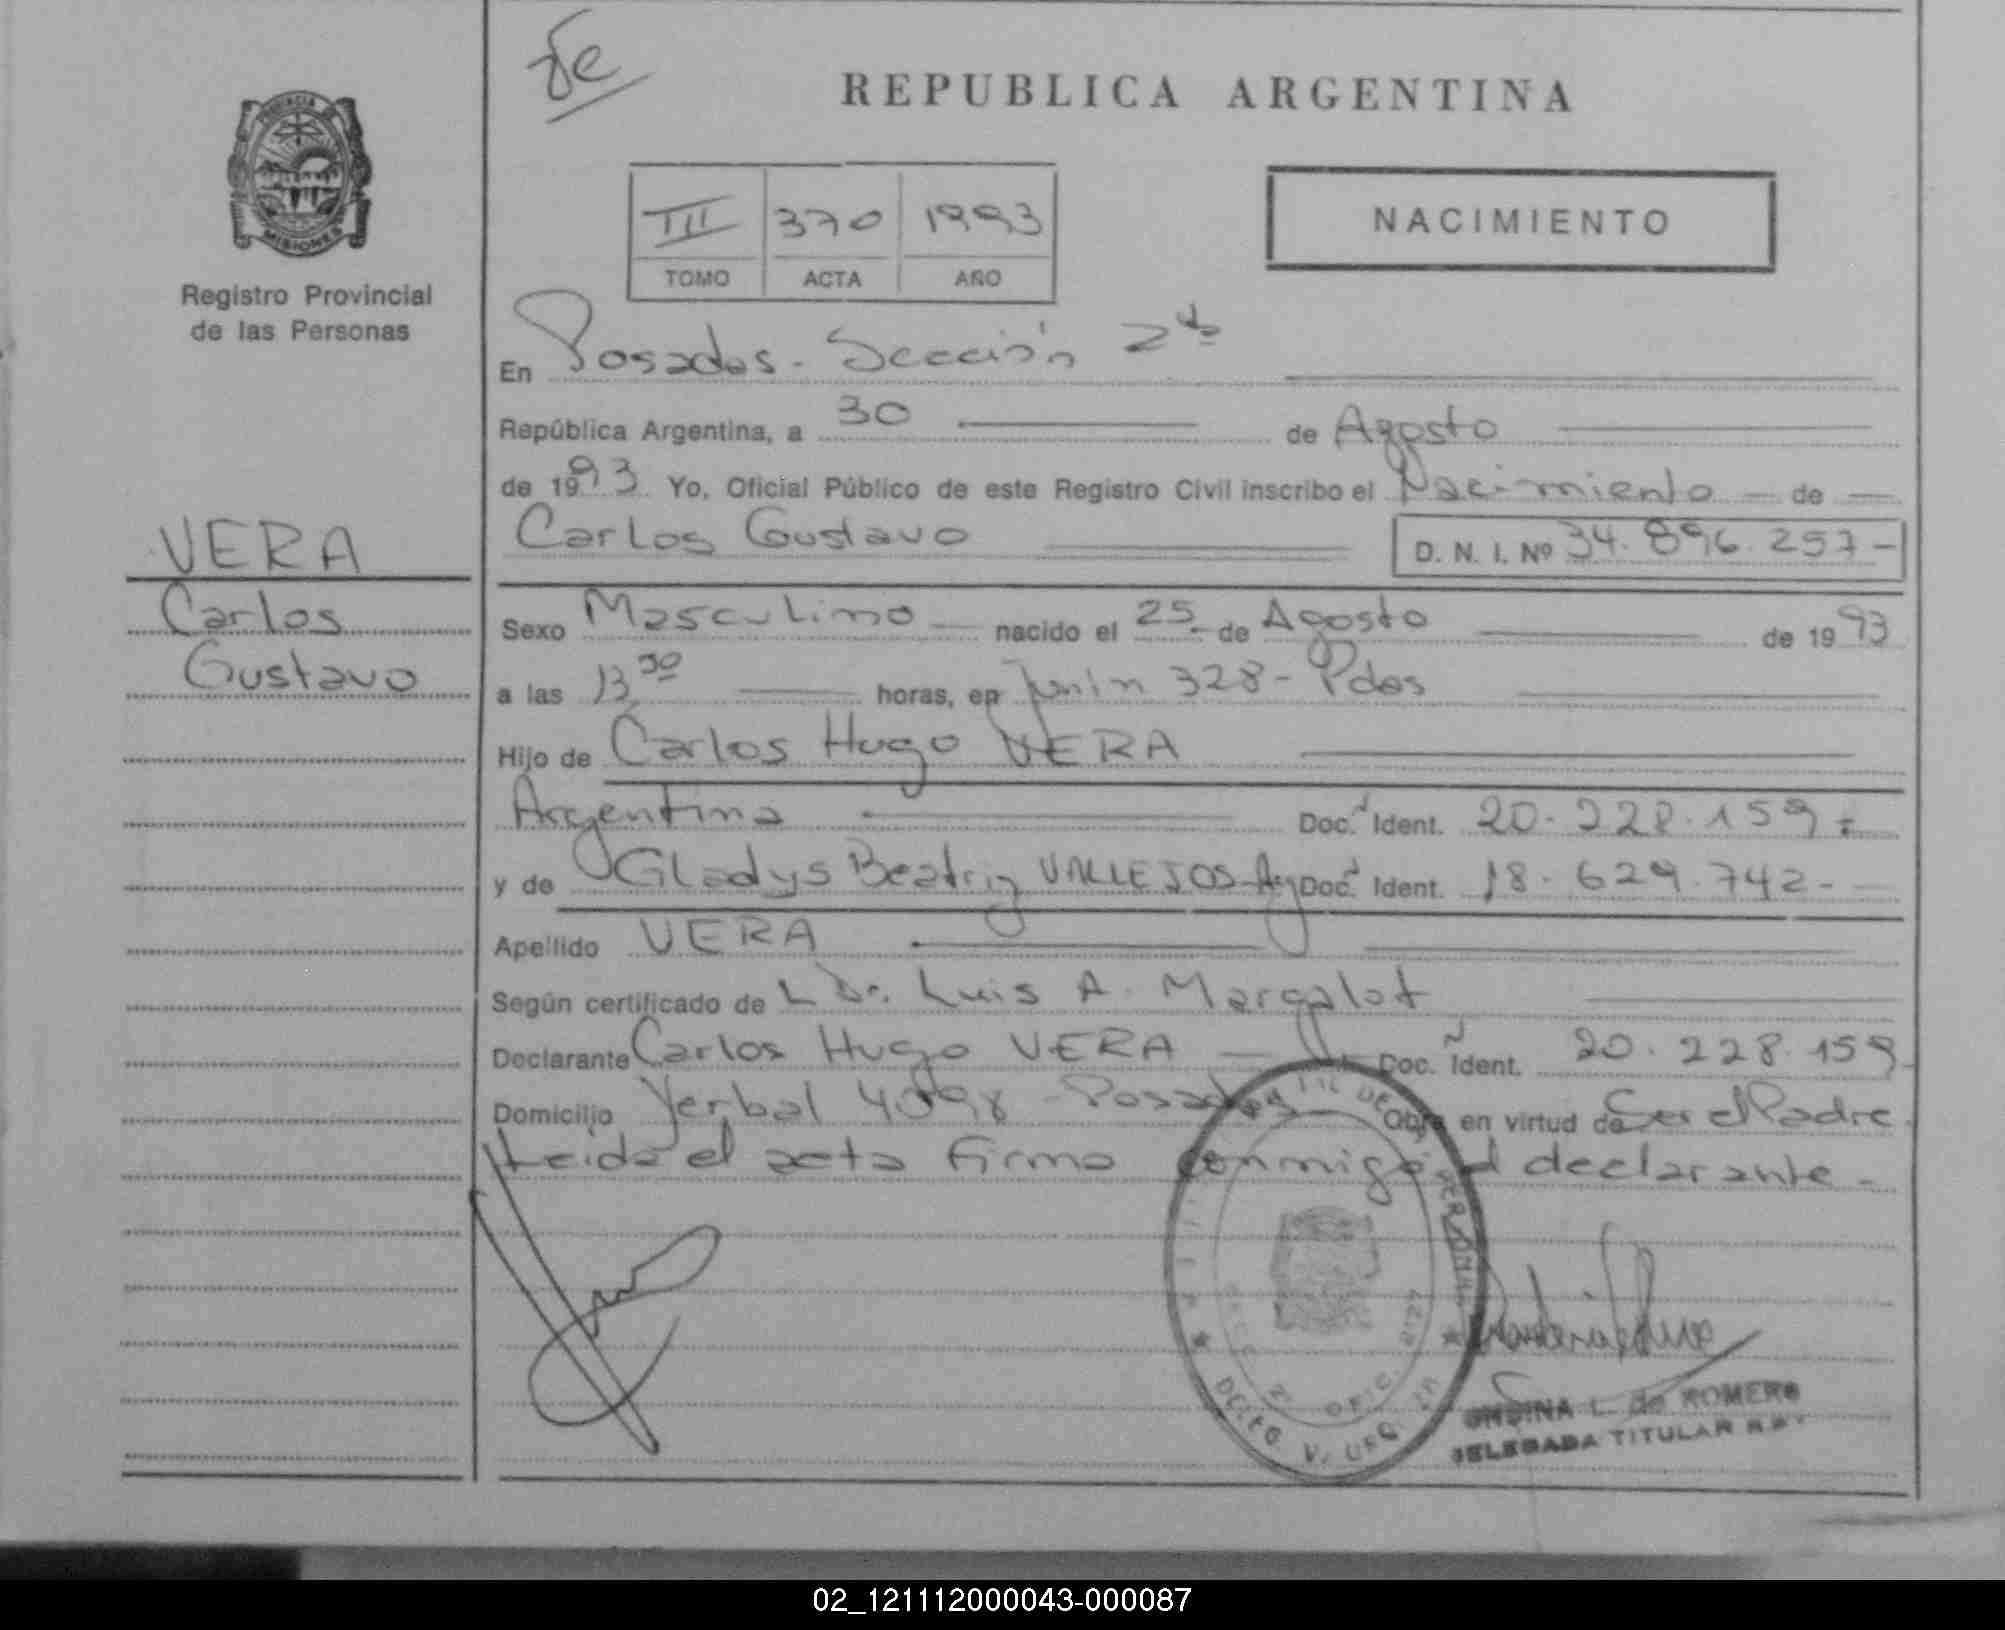 REPUBLICA ARGENTINA
MISIONES
Registro Provincial
de las Personas
III 370 1993
TOMO ACTA AÑO
NACIMIENTO
En Posadas - Sección 2da
República Argentina, a 30 de Agosto
de 1993 Yo, Oficial Público de este Registro Civil inscribo el Nacimiento de
Carlos Gustavo D. N. I. Nº 34.896.257-
VERA
Carlos
Gustavo
Sexo Masculino nacido el 25 de Agosto de 1993
a las 13 30 horas, en Junín 328 - Pdas
Hijo de Carlos Hugo VERA
Argentina Doc. Ident. 20.228.159
y de Gladys Beatriz VALLEJOS - Arg Doc. Ident. 18.629.742-
Apellido VERA
Según certificado de Dr. Luis A. Margalot
Declarante Carlos Hugo VERA Doc. Ident. 20.228.159
Domicilio Yerbal 4098 - Posadas Obra en virtud de Ser el Padre
Leida el acta firma conmigo el declarante -
ONDINA L. de ROMERO
DELEGADA TITULAR
02_121112000043-000087